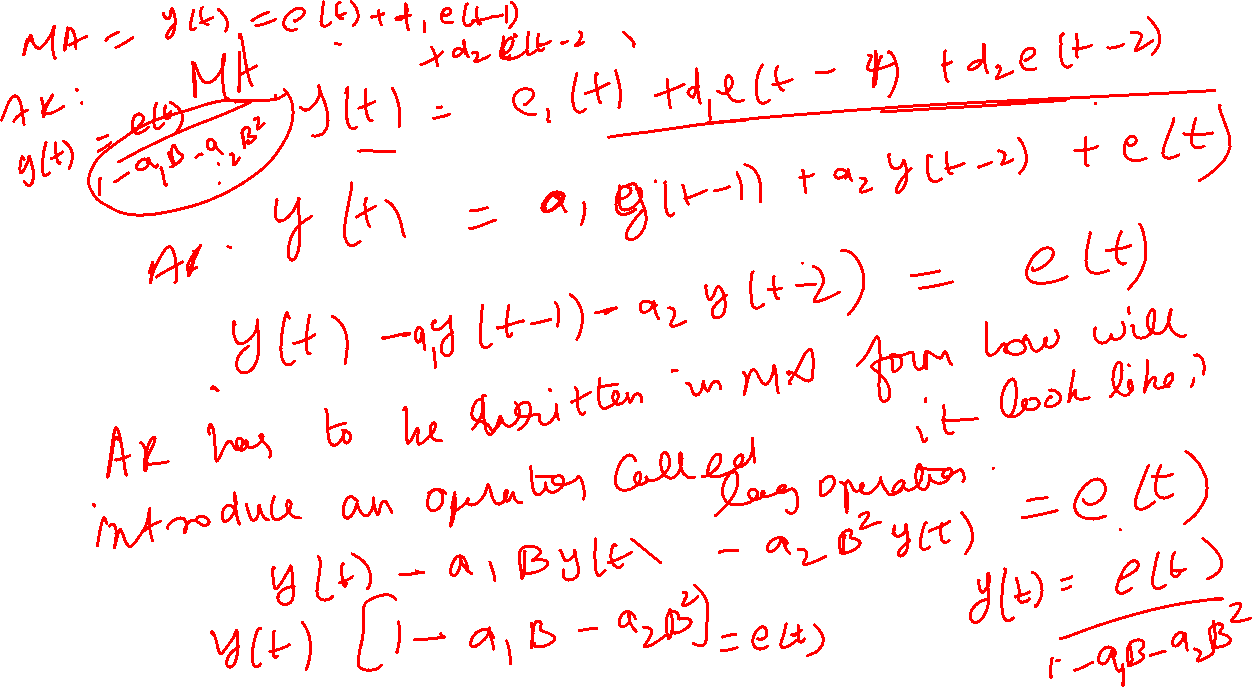 MA = y(t) = e(t) + d₁ e(t-1)
+ d₂ e(t-2)
MA y(t) = e₁(t) + d₁e(t - 1) + d₂e(t-2)
AR:
y(t) = e(t) / 1 - a₁B - a₂B²
AR: y(t) = a₁ y(t-1) + a₂ y(t-2) + e(t)
y(t) - a₁y(t-1) - a₂ y(t-2) = e(t)
AR has to be written in MA form how will
it look like?
introduce an operator called lag operator.
y(t) - a₁ B y(t) - a₂ B² y(t) = e(t)
y(t) [1 - a₁ B - a₂B²] = e(t)
y(t) = e(t) / 1 - a₁B - a₂B²